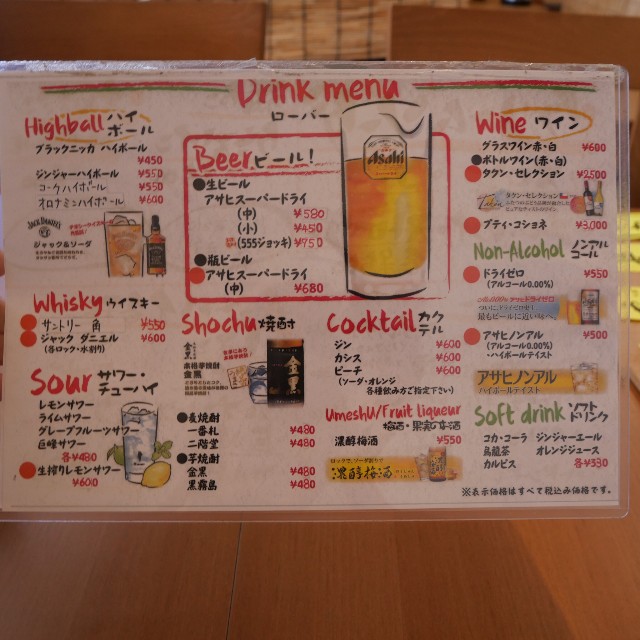 Drink menu
ローバー
Highball ハイボール
ブラックニッカ ハイボール
¥450
ジンジャーハイボール ¥550
コークハイボール ¥550
オロナミンハイボール ¥600
JACK DANIEL'S
ジャック&ソーダ
Whisky ウイスキー
サントリー 角 ¥550
ジャック ダニエル ¥600
(各ロック・水割り)
Sour サワー・チューハイ
レモンサワー
ライムサワー
グレープフルーツサワー
巨峰サワー
各¥480
生搾りレモンサワー
¥600
Beer ビール!
生ビール
アサヒスーパードライ
(中) ¥580
(小) ¥450
(555ジョッキ) ¥750
瓶ビール
アサヒスーパードライ
(中) ¥680
Asahi
Shochu 焼酎
金黒
本格芋焼酎
金黒
麦焼酎
一番札 ¥480
二階堂 ¥480
芋焼酎
金黒 ¥480
黒霧島 ¥480
Cocktail カクテル
ジン ¥600
カシス ¥600
ピーチ ¥600
(ソーダ・オレンジ
各種飲み方ご指定下さい)
Umeshu/Fruit liqueur
梅酒・果実のお酒
濃醇梅酒 ¥550
濃醇梅酒
Wine ワイン
グラスワイン(赤・白) ¥600
ボトルワイン(赤・白)
タクン・セレクション ¥2,500
タクン・セレクション
プティ・コショネ ¥3,000
Non-Alcohol ノンアルコール
ドライゼロ ¥550
(アルコール0.00%)
最もビールに近い味へ
アサヒノンアル ¥500
(アルコール0.00%)
・ハイボールテイスト
アサヒノンアル
ハイボールテイスト
Soft drink ソフトドリンク
コカ・コーラ ジンジャーエール
烏龍茶 オレンジジュース
カルピス 各¥330
※表示価格はすべて税込み価格です。